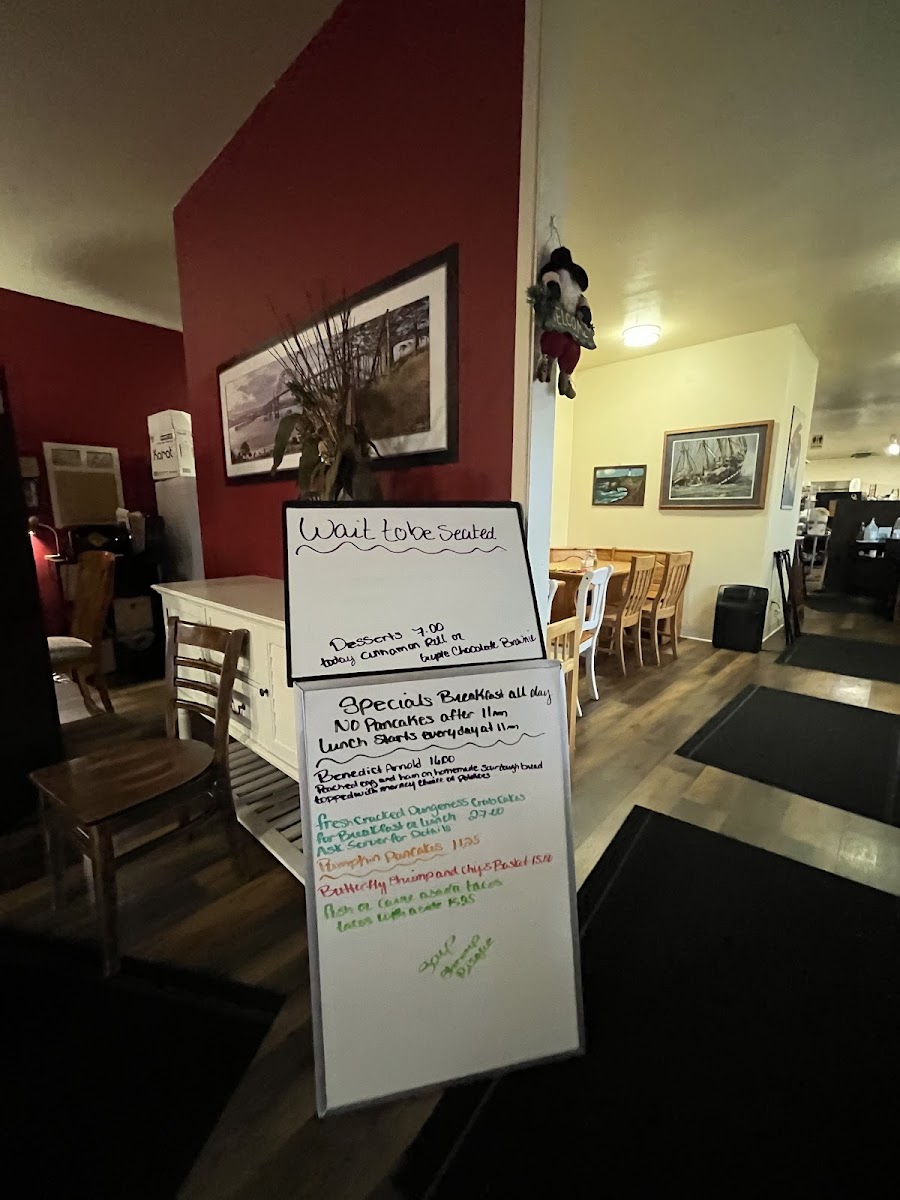 Karat
WELCOME
Wait to be Seated
Desserts 7.00
today cinnamon Roll or
triple Chocolate Brownie
Specials Breakfast all day
NO Pancakes after 11am
Lunch Starts everyday at 11am
Benedict Arnold 16.00
Poached egg and ham on homemade sourdough bread
topped with mornay choice of potatoes
fresh Cracked Dungeness Crab Cakes
for Breakfast or Lunch 27.00
Ask Server for Details
Pumpkin Pancakes 11.25
Butterfly Shrimp and Chips Basket 15.50
fish or carne asada tacos
tacos with a side 15.25
Soup
Shrimp
Bisque